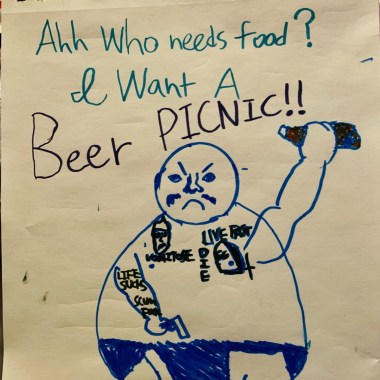 Ahh Who needs food?
I Want A
Beer PICNIC!!
LIVE FAST
DIE
LIFE
SUCKS
SCUM